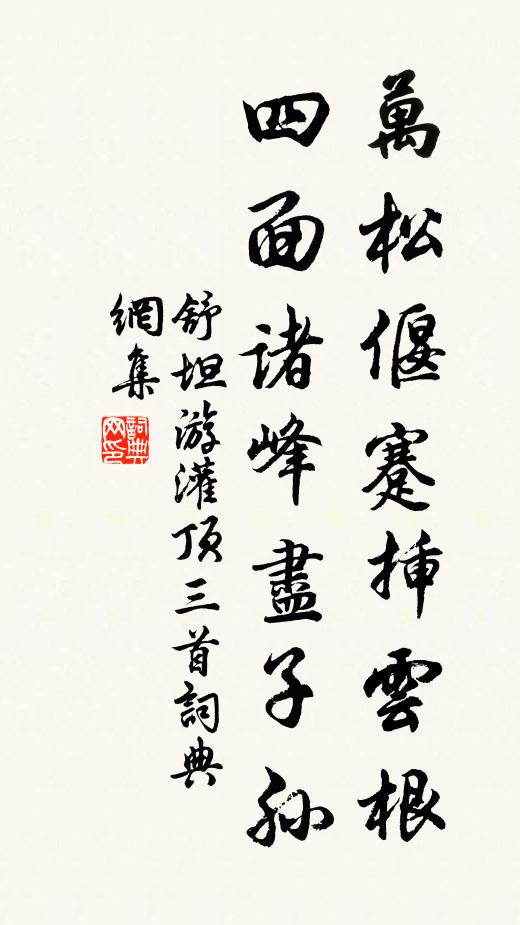 萬松偃蹇挿雲根
四面诸峰盡子孙
舒坦游灌顶三首詞典
網集
詞典
网印